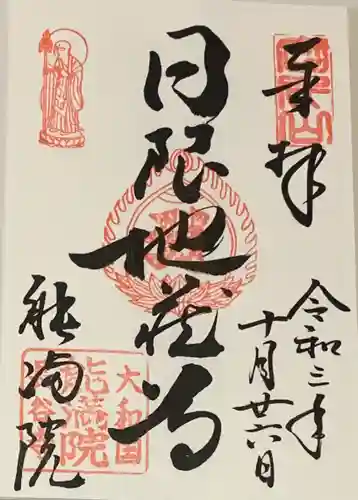 奉拝
令和三年
十月廿六日
日限地蔵尊
能満院
大和国
能満院